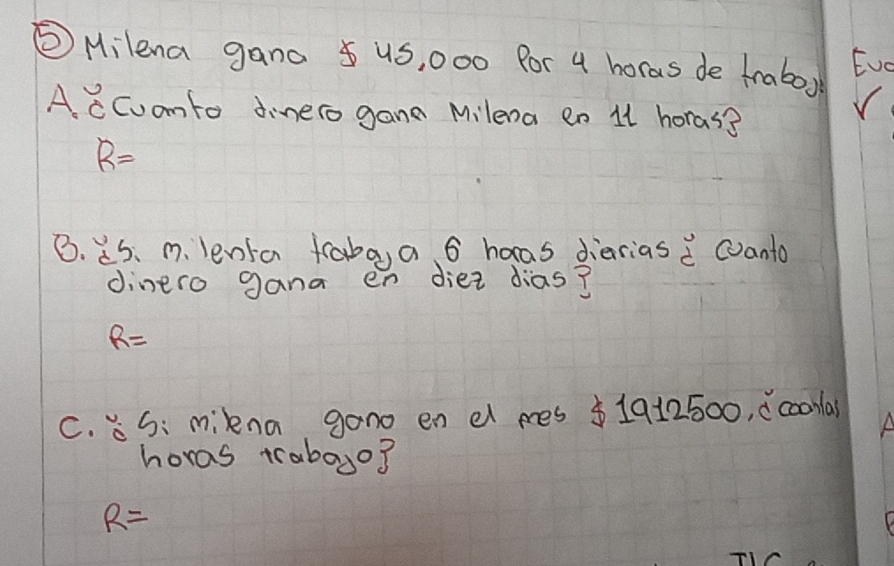 ⑤ Milena gana $ 45,000 Por 4 horas de trabajo
A. ¿Cuanto dinero gana Milena en 11 horas?
R=
B. ¿Si milenta trabaja 6 horas diarias ¿ cuanto
dinero gana en diez dias?
R=
C. ¿ Si milena gano en el mes $ 1912500, ¿cuantas
horas trabajo?
R=